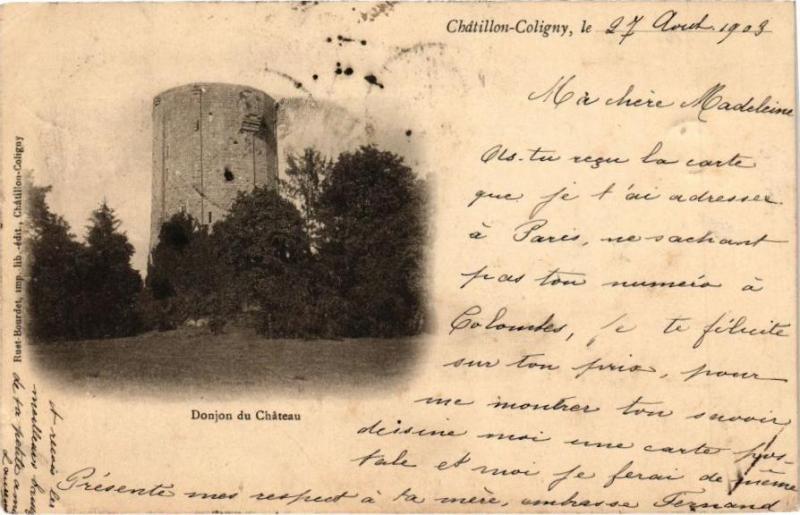 Châtillon-Coligny, le 27 Aout 1903
Ma chère Madeleine
As-tu reçu la carte
que je t'ai adresser
à Paris, ne sachant
pas ton numéro à
Colombes, je te félicite
sur ton prix, pour
me montrer ton savoir
dessine moi une carte pos-
tale et moi je ferai de même
Présente mes respect à ta mère, embrasse Fernand
et reçois les
meilleurs
de ta petite amie
Donjon du Château
Rust-Bourdet, imp. lib.-édit., Châtillon-Coligny